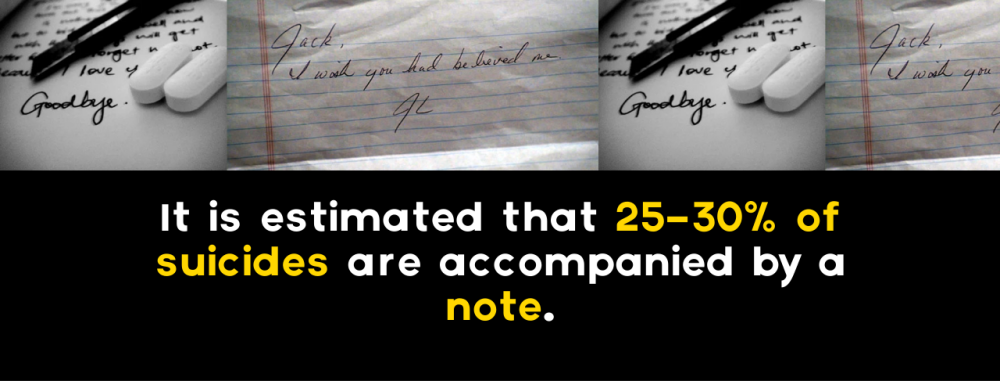 get
forget
I love
Goodbye.
Jack,
I wish you had believed me
JL
get
forget
I love
Goodbye.
Jack,
I wish you
It is estimated that 25-30% of
suicides are accompanied by a
note.